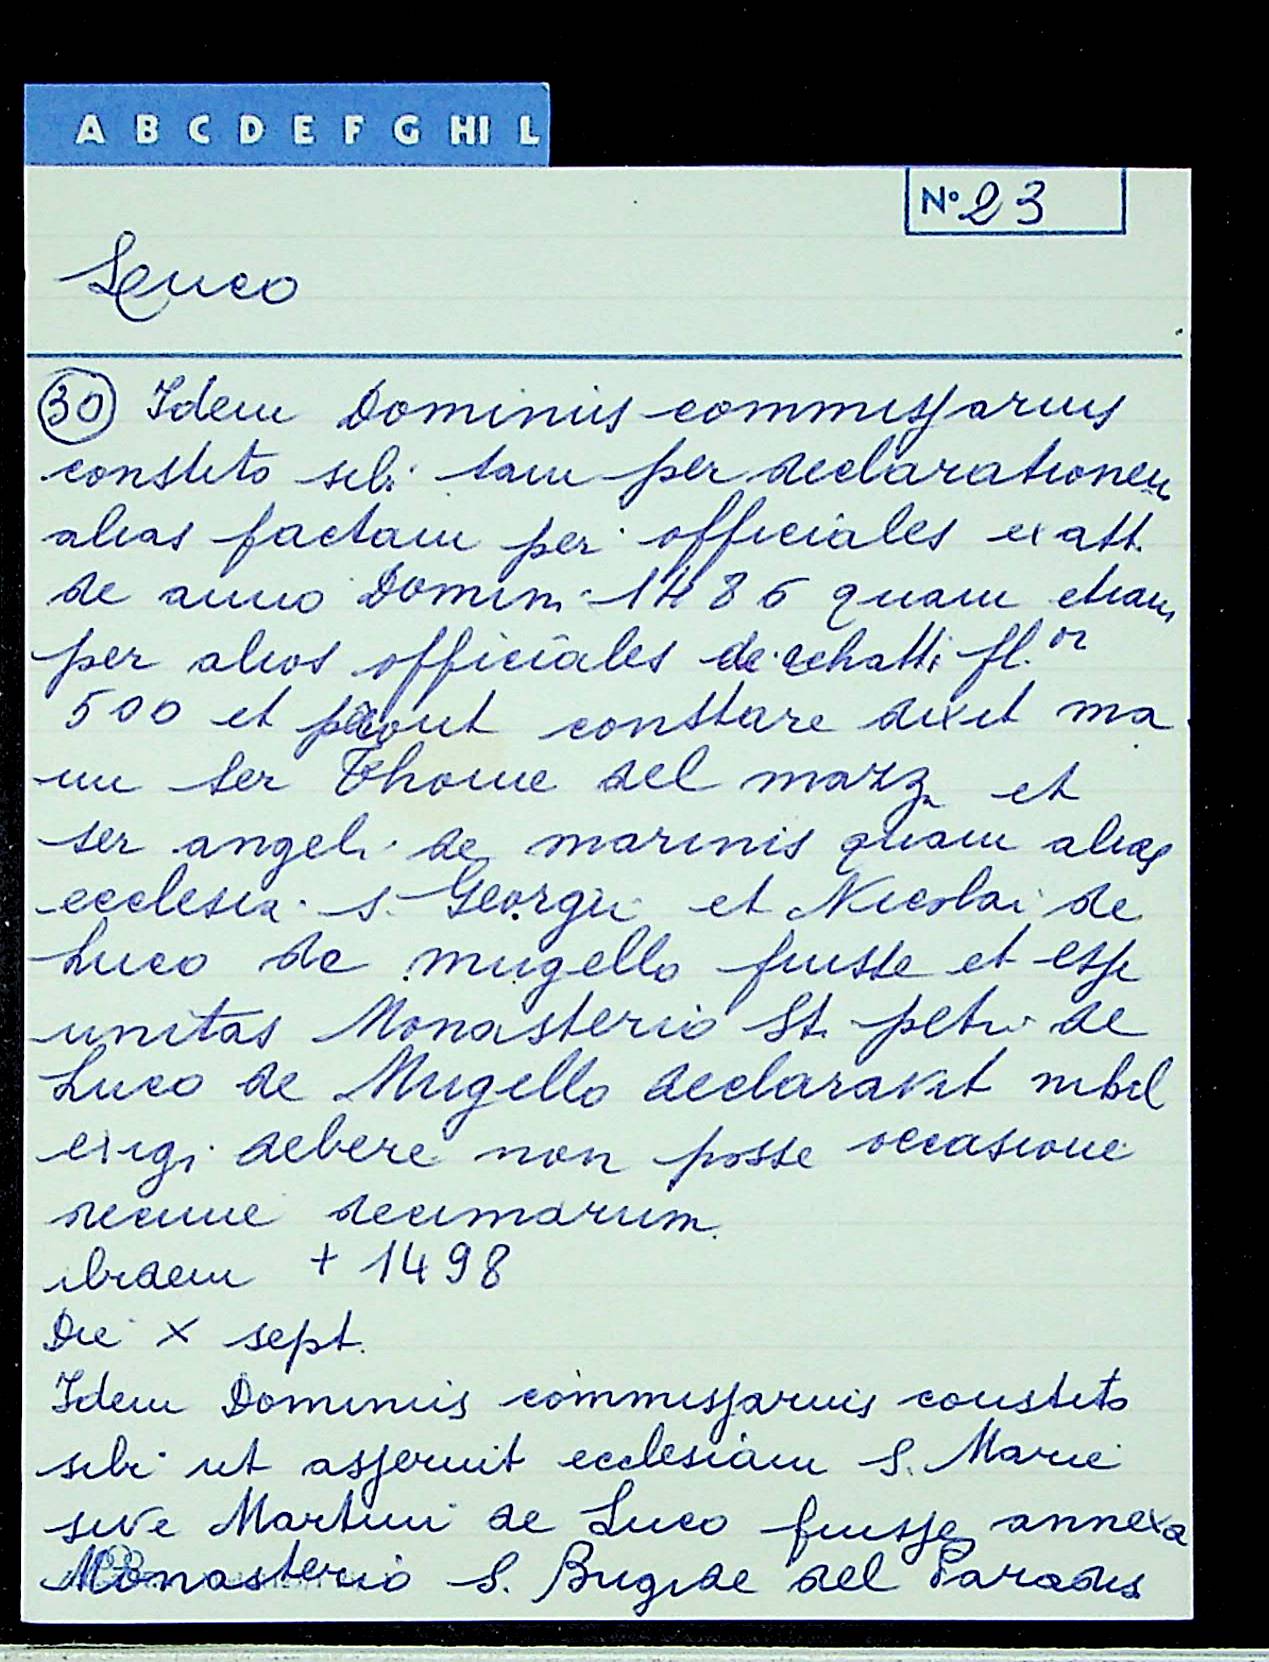 A B C D E F G HI L
N° 23
Luco
30 Idem Dominus commissarius
constito sibi tam per declarationem
alias factam per officiales ex att.
de anno Domini 1486 quam etiam
per alios officiales de
500 et prout constare dixit ma
nu ser Thome del marz. et
ser angeli de marinis quam alias
ecclesia s. Georgii et Nicolai de
Luco de mugello fuisse et esse
unitas Monasterio St. petri de
Luco de Mugello declaravit nihil
exigi debere non posse occasione
decime decimarum.
ibidem + 1498
Die X sept.
Idem Dominus commissarius constito
sibi ut asseruit ecclesiam S. Marie
sive Martini de Luco fuisse annexa
Monasterio S. Brigide del Paradis